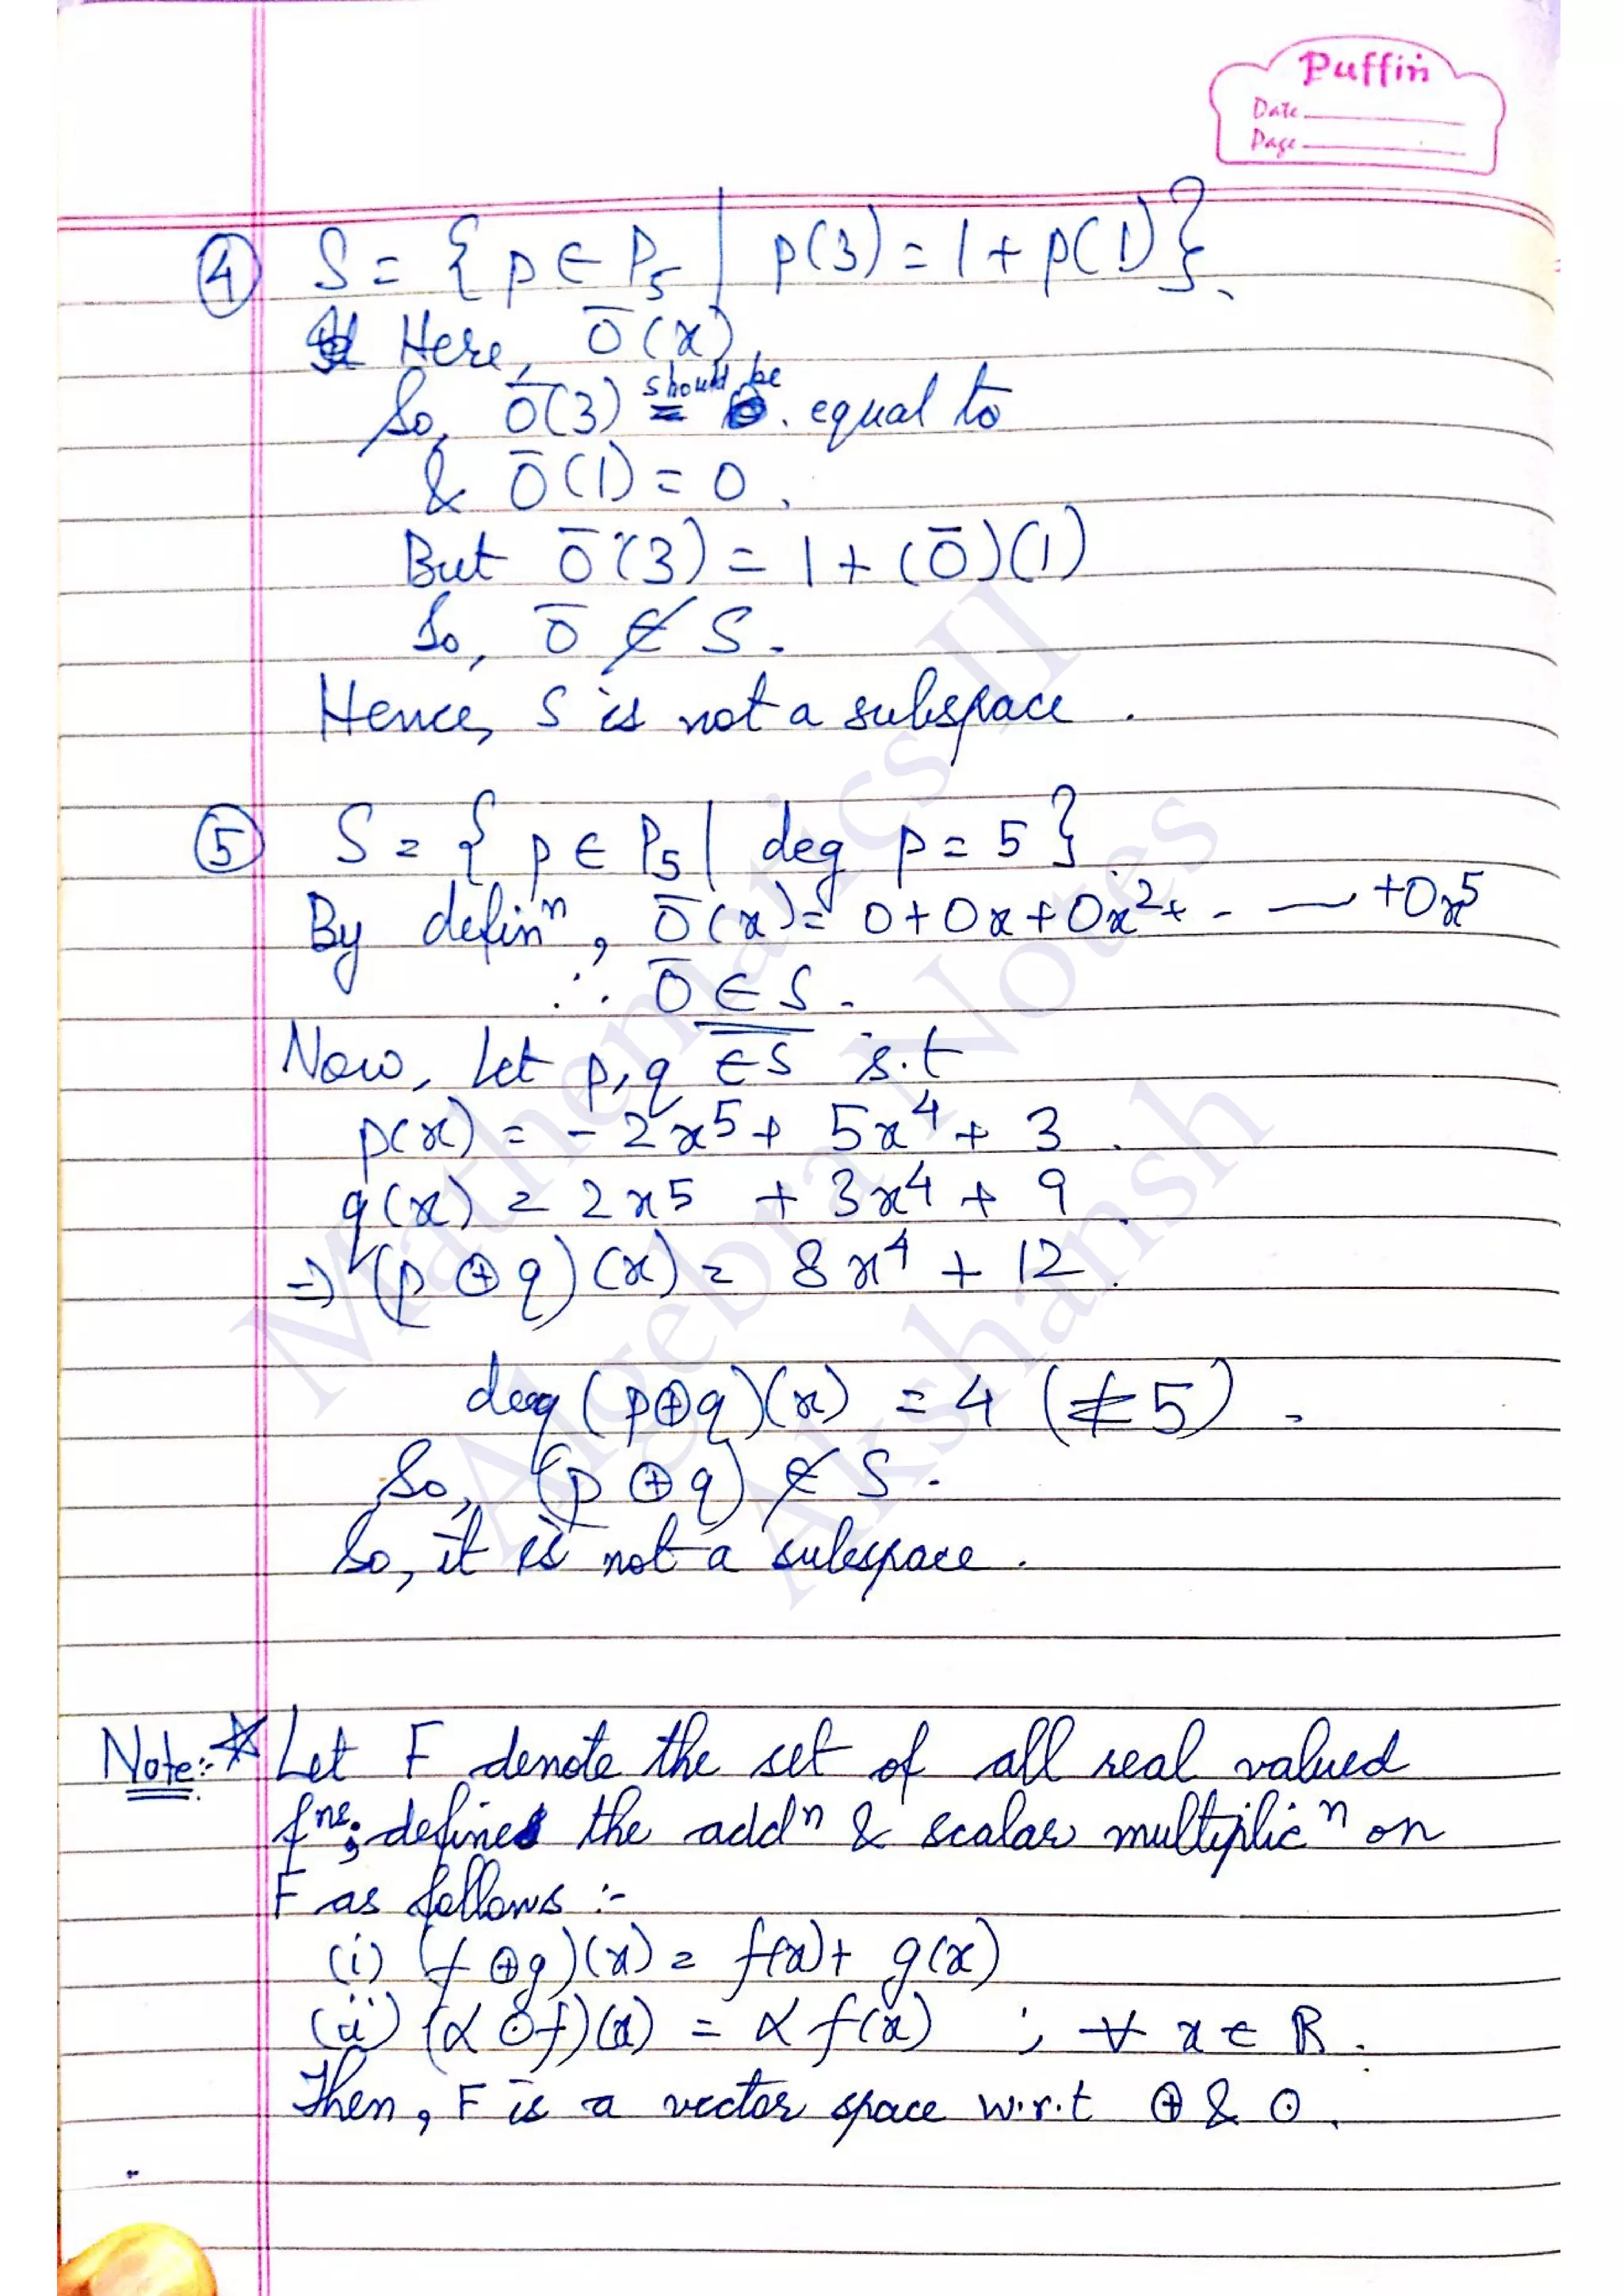 Puffin
Date
Page
④ S = { p ∈ P₅ | p(3) = 1 + p(1) }.
Here, 0̄(x)
So, 0̄(3) should be equal to
& 0̄(1) = 0.
But 0̄(3) = 1 + (0̄)(1)
So, 0̄ ∉ S.
Hence, S is not a subspace.
⑤ S = { p ∈ P₅ | deg p = 5 }
By definⁿ, 0̄(x) = 0 + 0x + 0x² + - — + 0x⁵
∴ 0̄ ∈ S.
Now, Let p, q ∈ S s.t
p(x) = -2x⁵ + 5x⁴ + 3.
q(x) = 2x⁵ + 3x⁴ + 9.
⇒ (p ⊕ q)(x) = 8x⁴ + 12.
deg (p⊕q)(x) = 4 (≠ 5).
So, (p ⊕ q) ∉ S.
So, it is not a subspace.
Note:- ☆ Let F denote the set of all real valued
fⁿˢ; define the addⁿ & scalar multiplicⁿ on
F as follows :-
(i) (f ⊕ g)(x) = f(x) + g(x)
(ii) (α ⊙ f)(x) = α f(x) ; ∀ x ∈ R.
Then, F is a vector space w.r.t ⊕ & ⊙.
Mathematics II
Algebra Notes
Akshansh